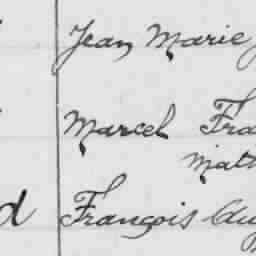 Jean Marie
Marcel Fra
Math
d François Aug